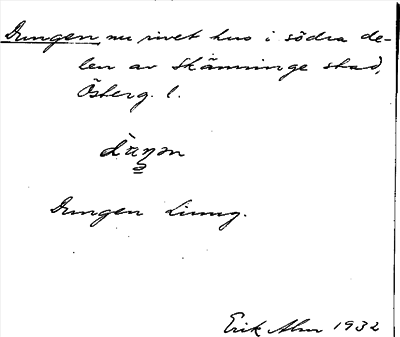 Dungen nu rivet hus i södra de-
len av Skänninge stad,
Österg. l.
Dungen Linng.
Erik Alm 1932